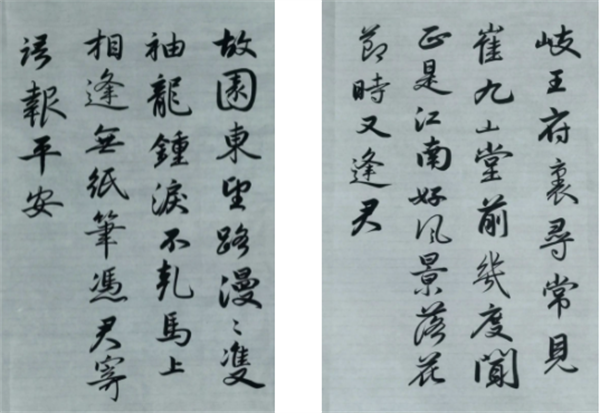 歧王府裏尋常見
崔九山堂前幾度聞
正是江南好風景落花
節時又逢君
故園東望路漫〻雙
袖龍鍾淚不乾馬上
相逢無紙筆憑君寄
語報平安